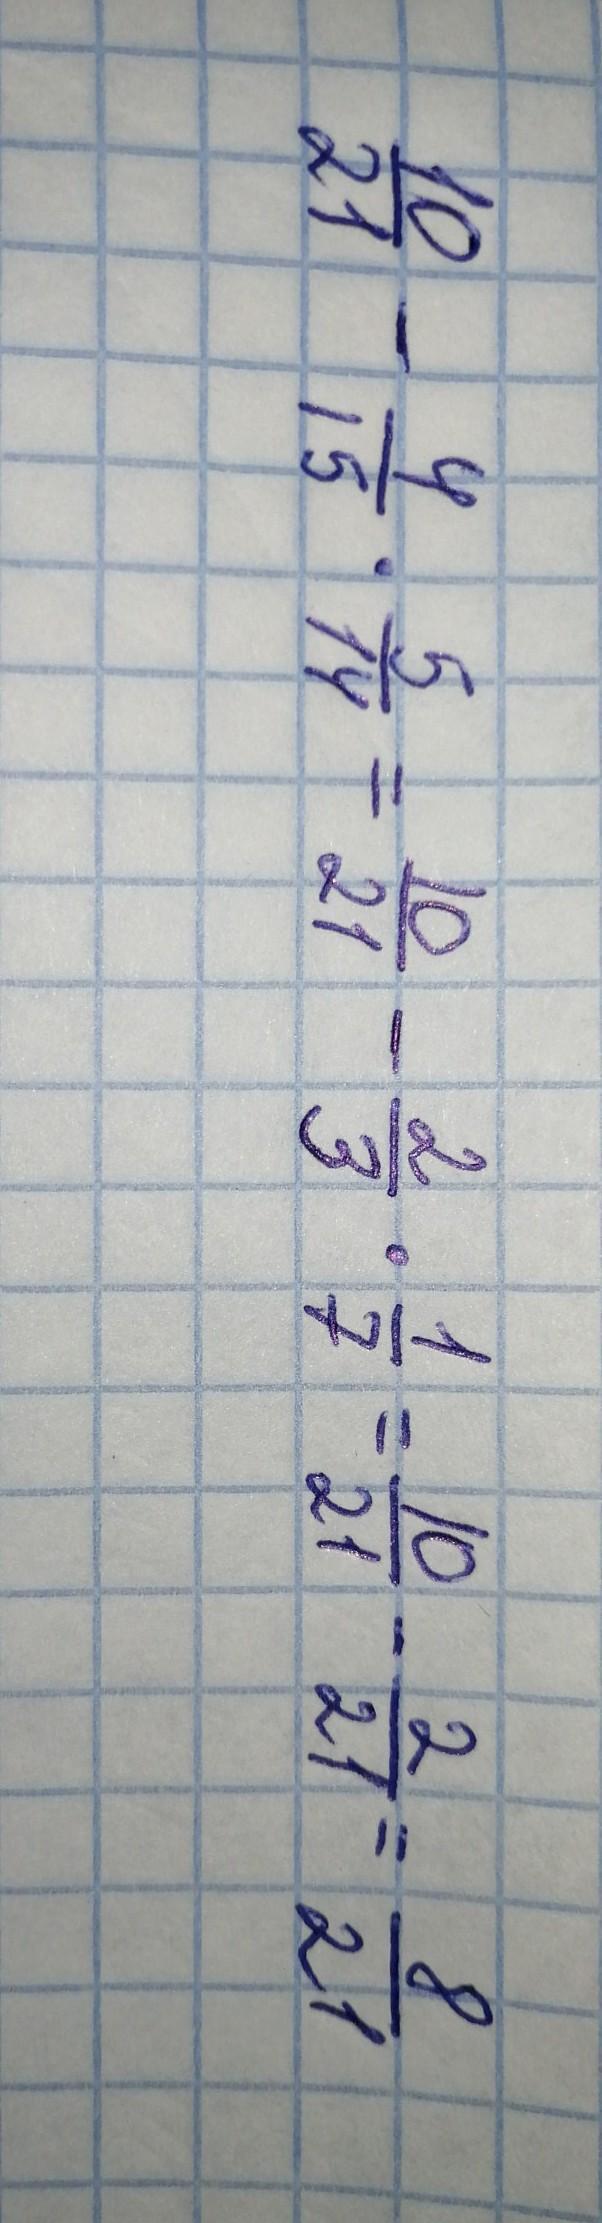 10/21 - 4/15 · 5/14 = 10/21 - 2/3 · 1/7 = 10/21 - 2/21 = 8/21